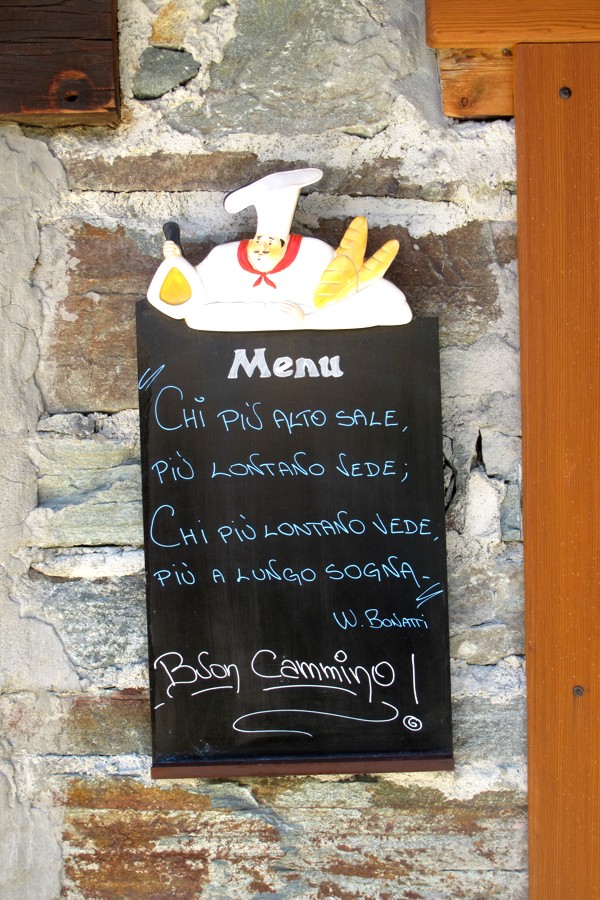 Menu
"CHI PIÙ ALTO SALE,
PIÙ LONTANO VEDE;
CHI PIÙ LONTANO VEDE,
PIÙ A LUNGO SOGNA-"
W. BONATTI
BUON CAMMINO!
G